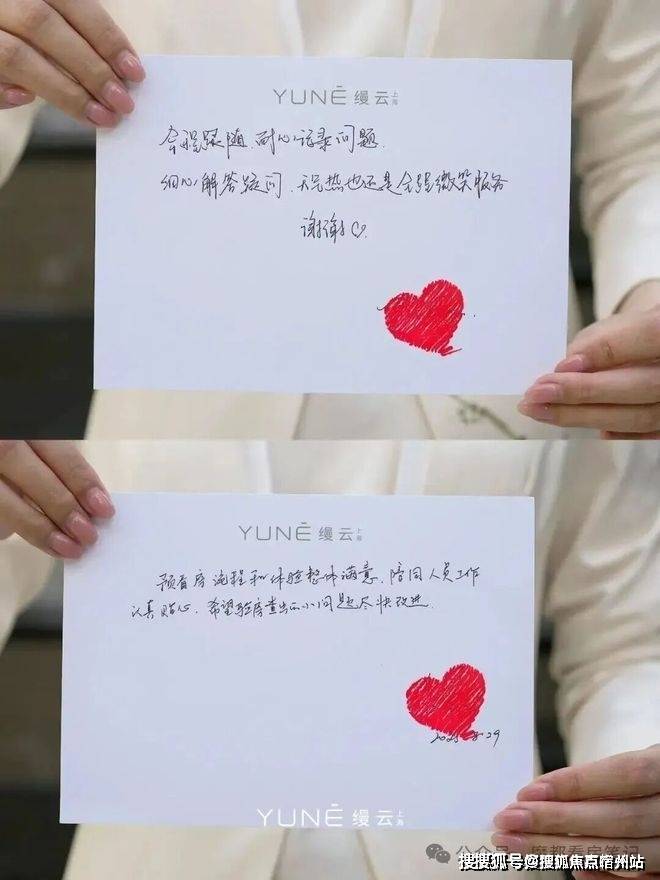 YUNĒ 缦云上海
全程跟随、耐心记录问题、
细心解答疑问、天气热也还是全程微笑服务
谢谢♡.
YUNĒ 缦云上海
预看房流程和体验整体满意，陪同人员工作
认真贴心，希望验房查出的小问题尽快改进.
29
YUNĒ 缦云上海
公众号·魔都看房笔记
搜搜狐号@搜狐焦点宿州站